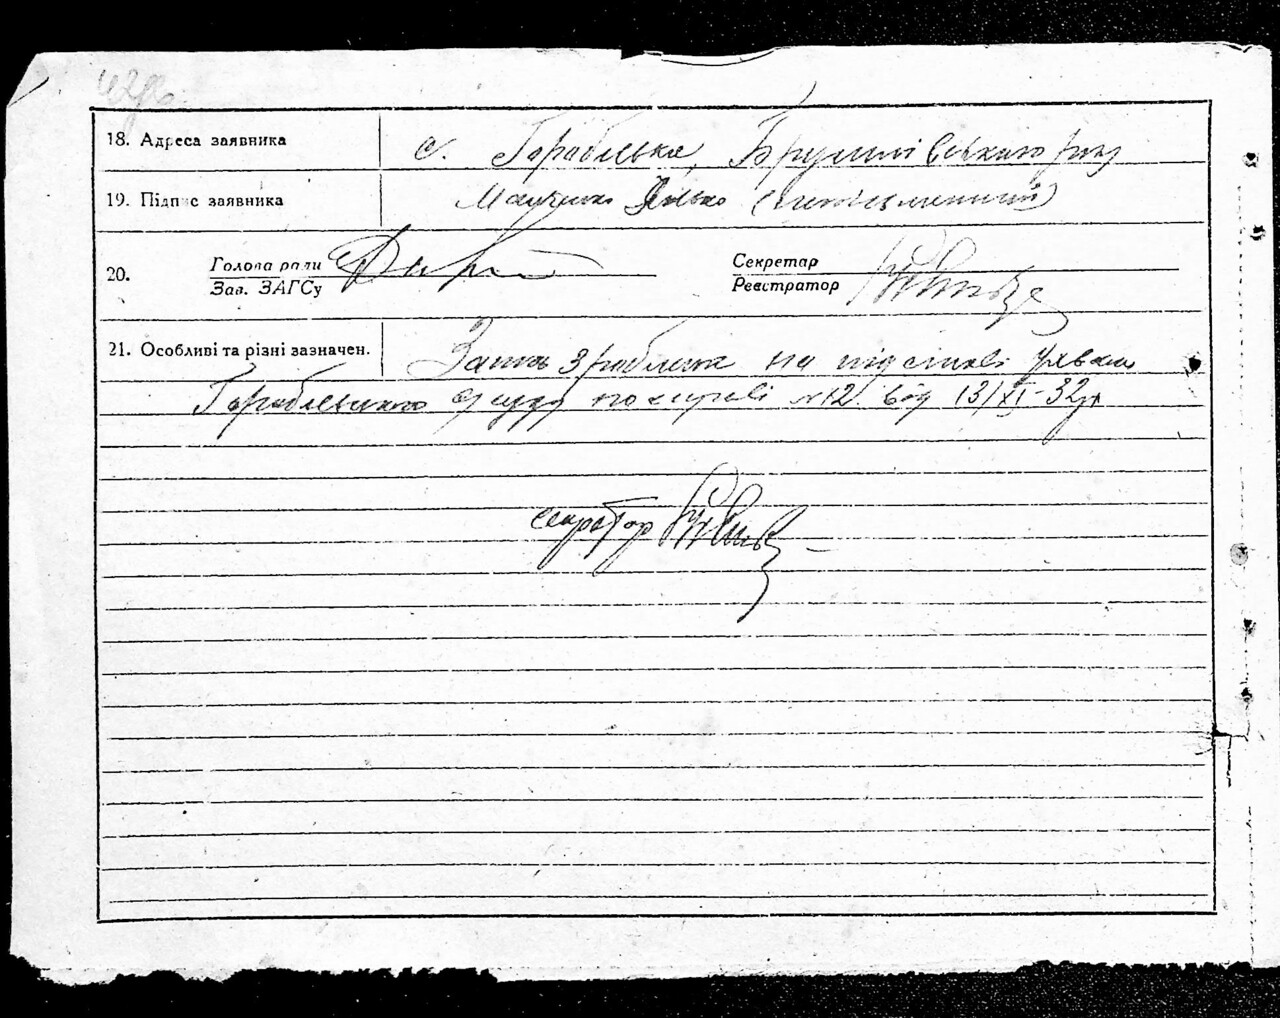 18. Адреса заявника с. Горобіевка, Брусилівського рай
19. Підпис заявника Янько (неписьменний)
20. Голова ради
Зав. ЗАГСу
Секретар
Реєстратор
21. Особливі та різні зазначен. Запис зроблена на підставі ухвали
суду по справі №12 від 13/XI-32р
секретар